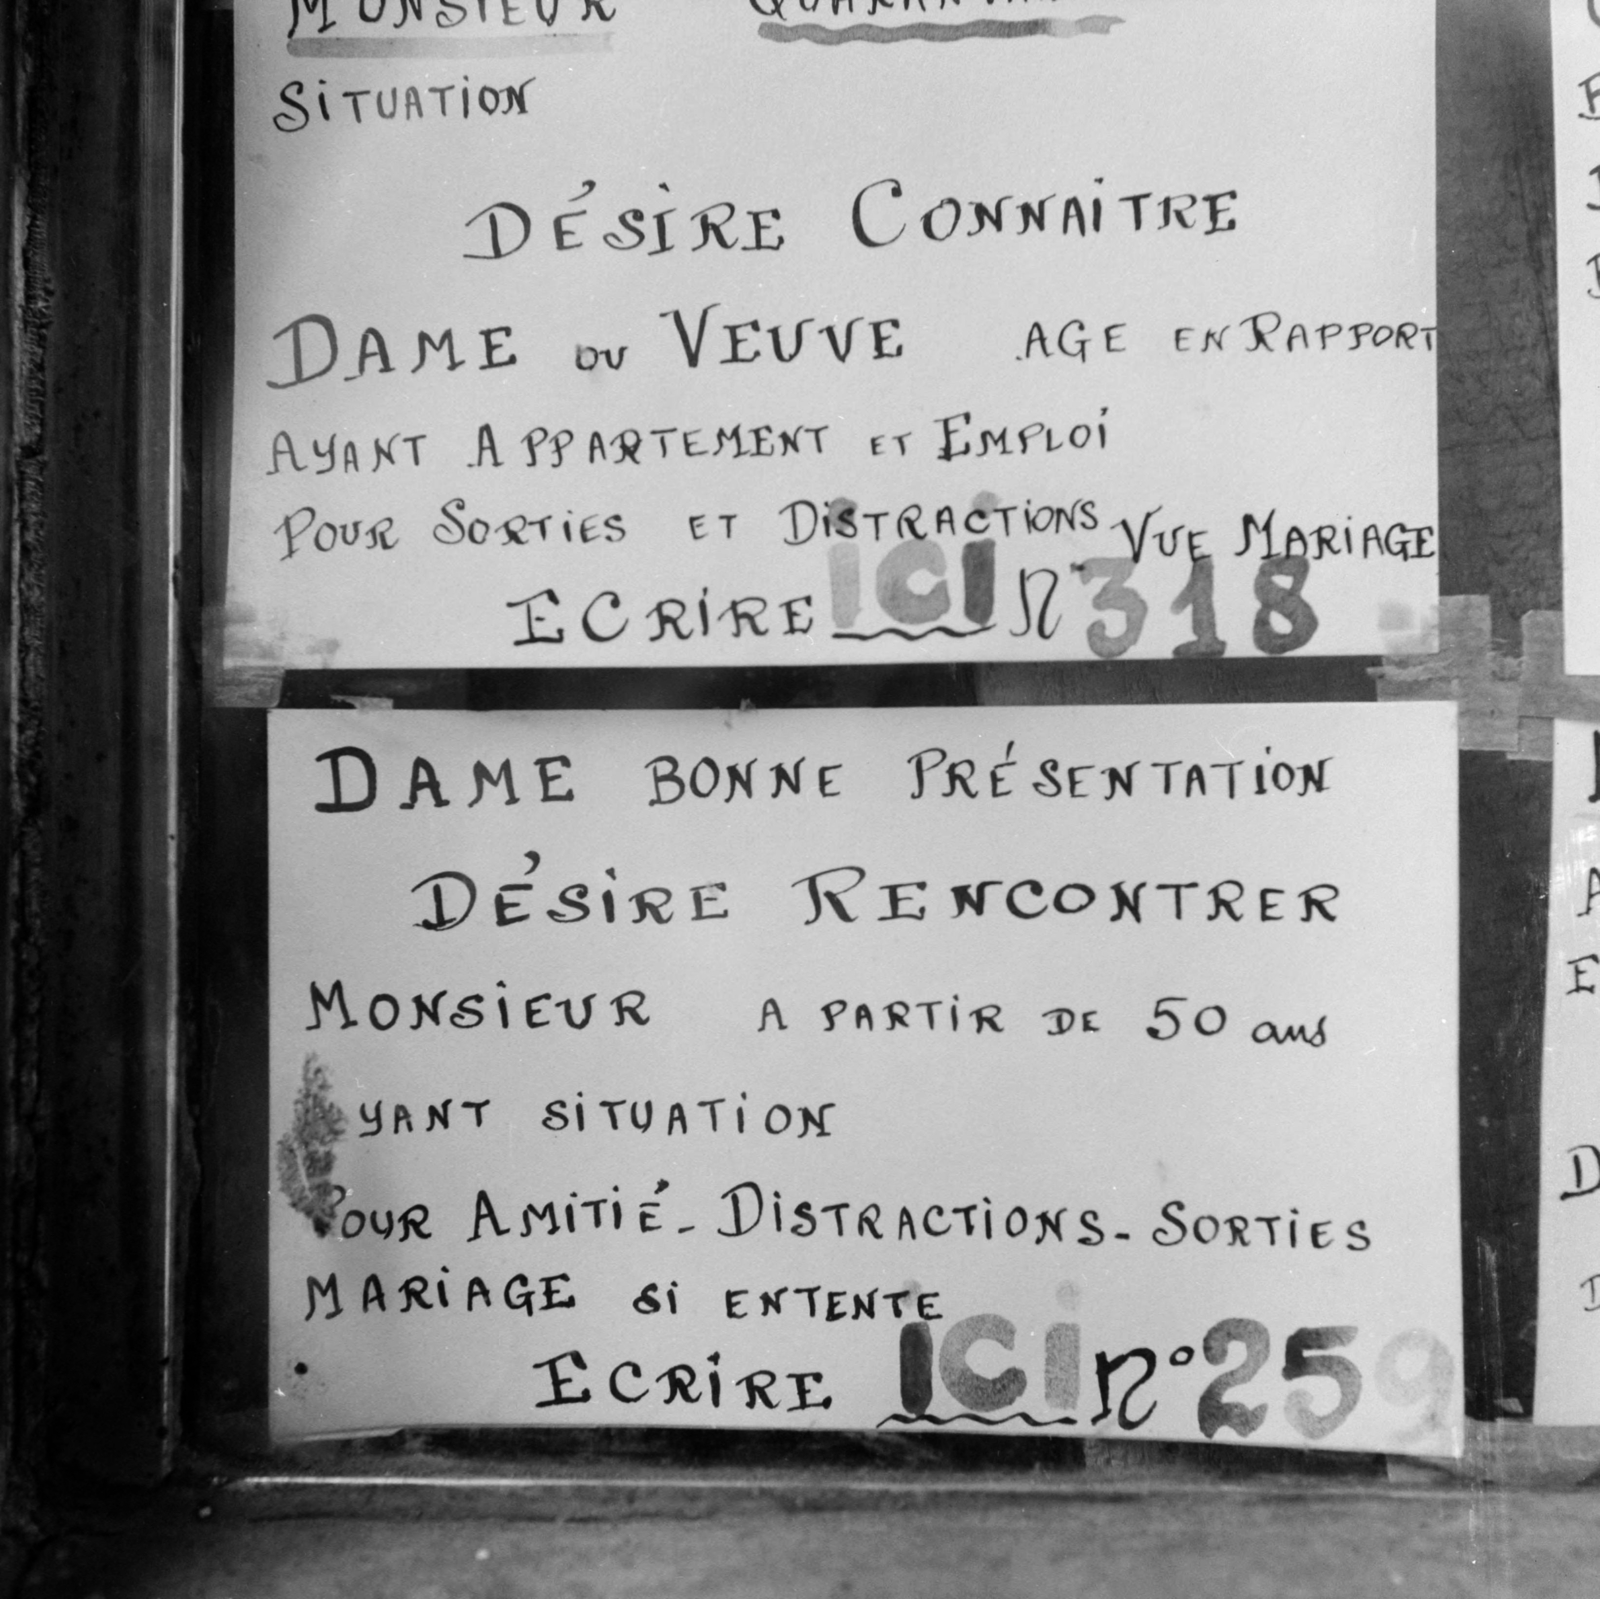 MONSIEUR
SiTUATiON
DÉSiRE CONNAiTRE
DAME OU VEUVE AGE EN RAPPORT
AYANT APPARTEMENT ET EMPLOi
POUR SORTiES ET DiSTRACTiONS VUE MARiAGE
ECRiRE iCi N° 318
DAME BONNE PRÉSENTATiON
DÉSiRE RENCONTRER
MONSiEUR A PARTiR DE 50 ans
YANT SiTUATiON
POUR AMiTiÉ - DiSTRACTiONS - SORTiES
MARiAGE Si ENTENTE
ECRiRE iCi N° 259